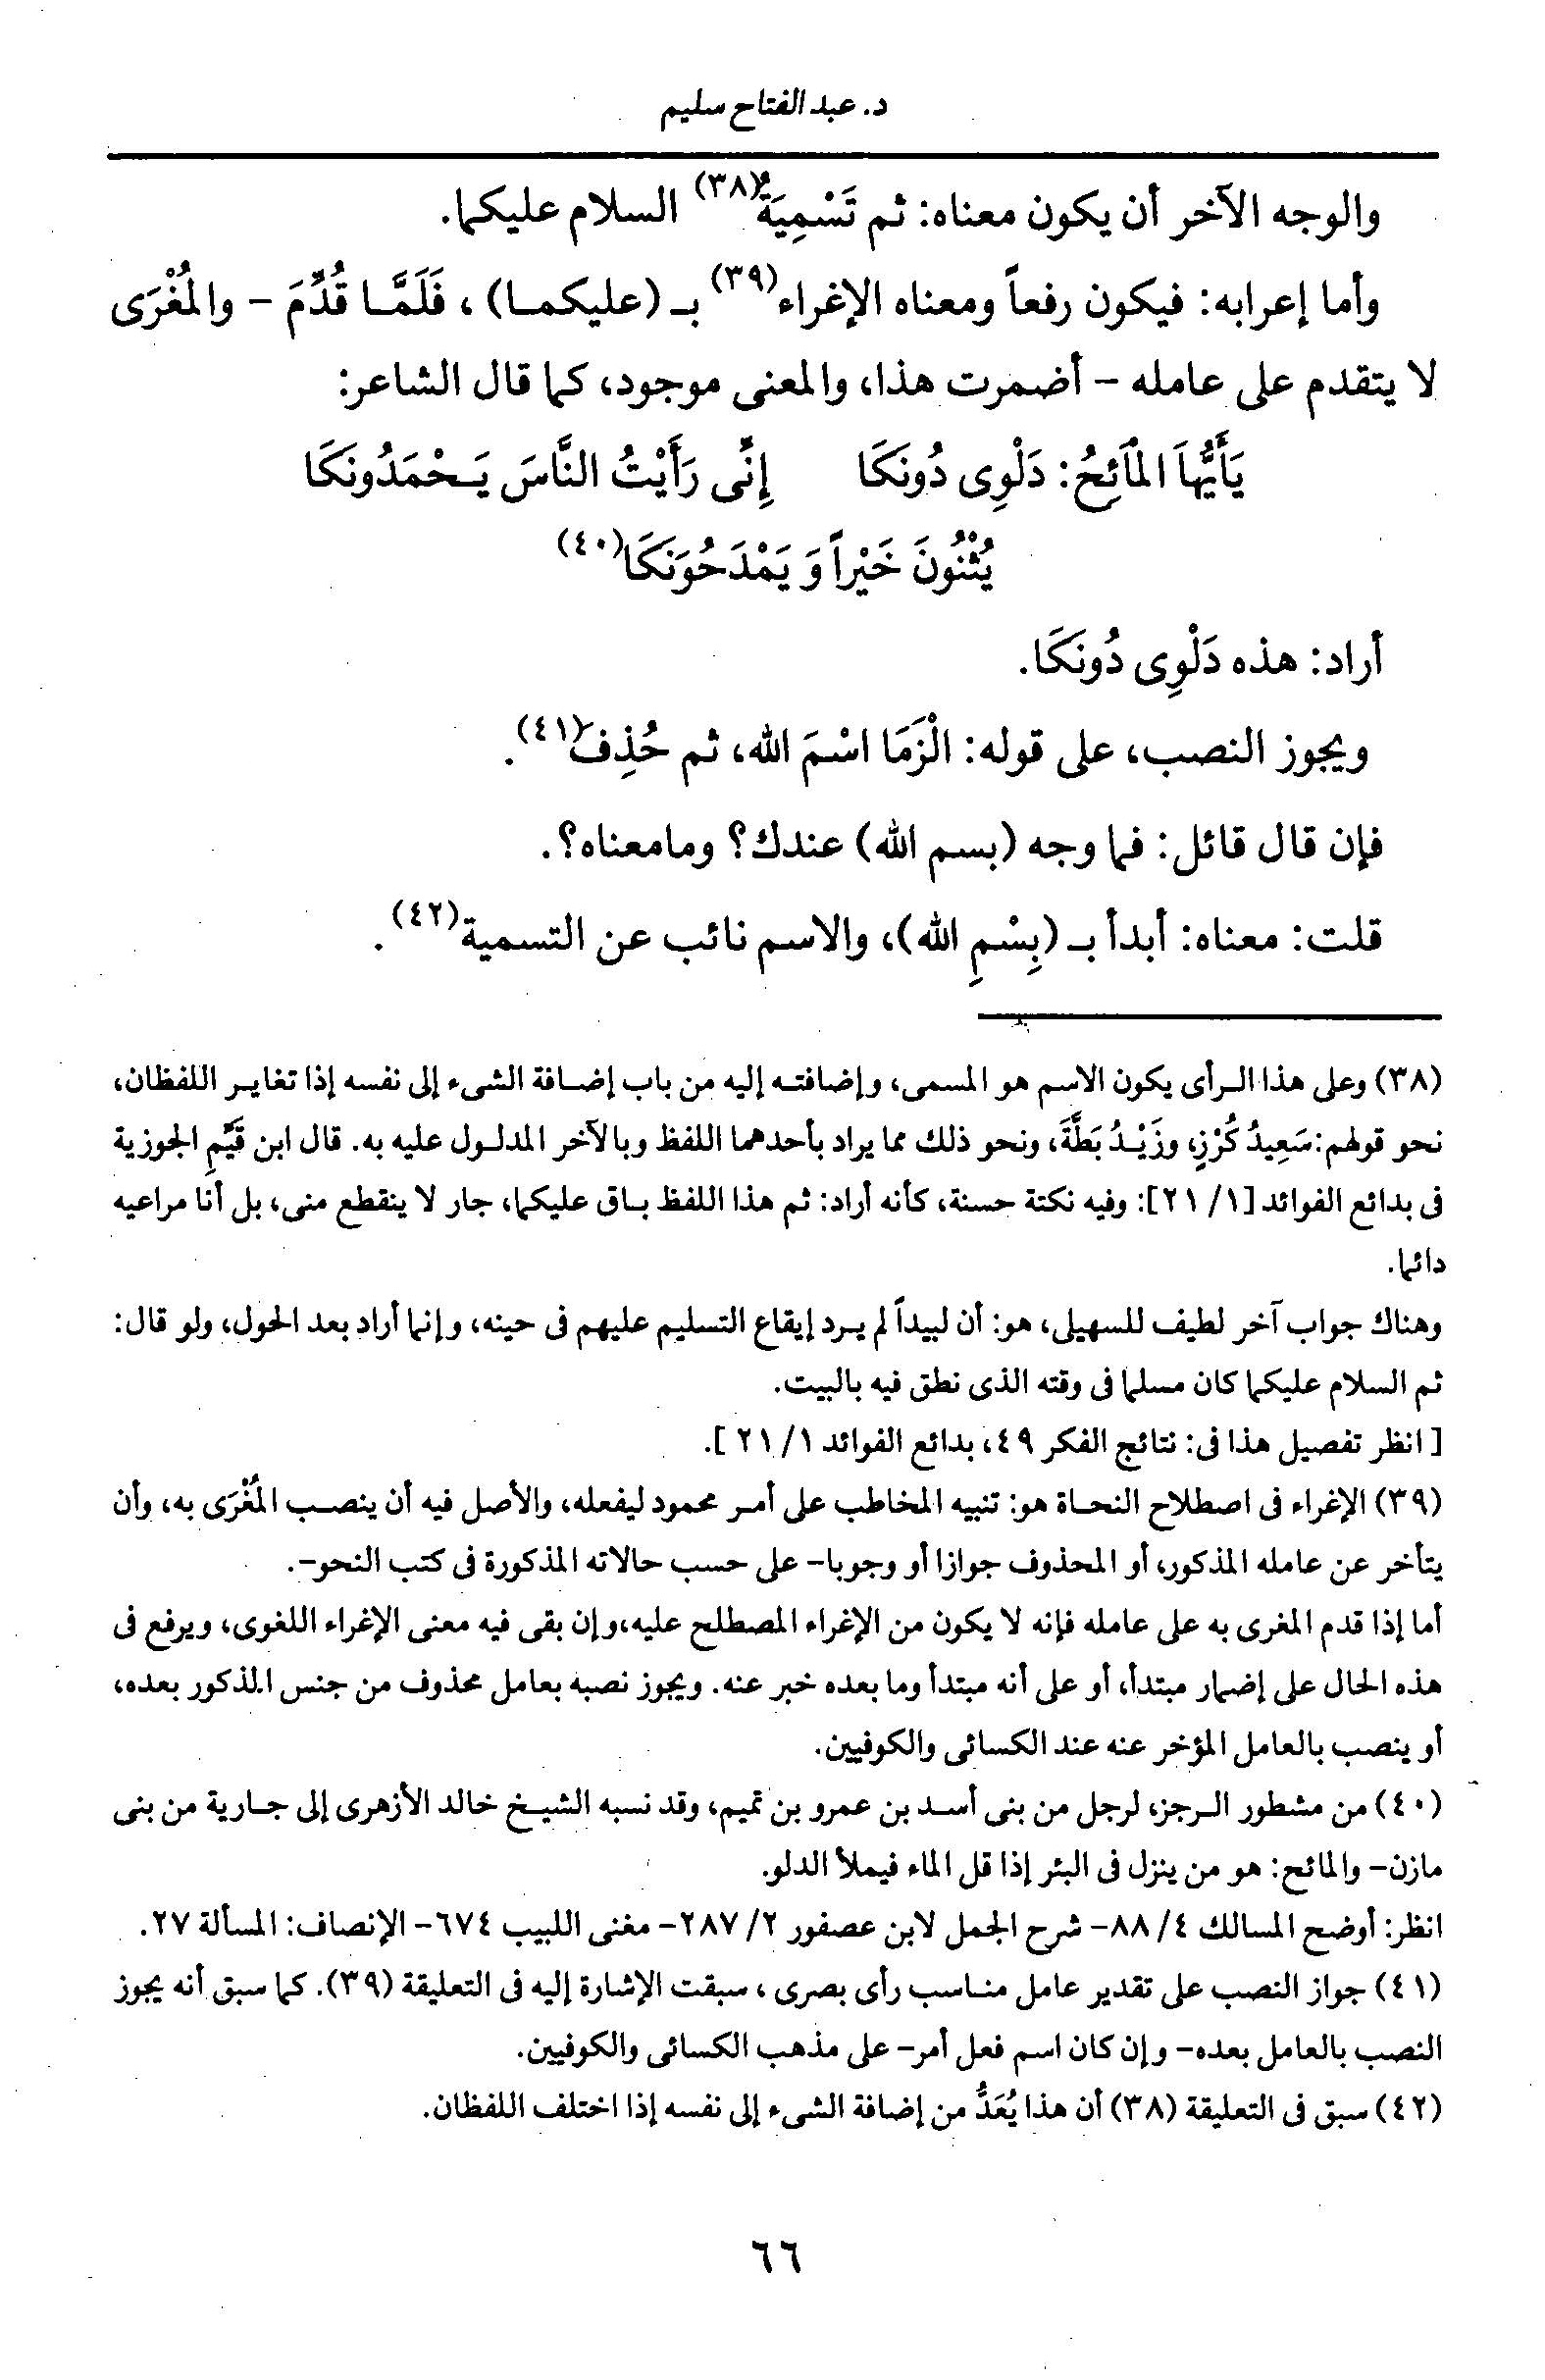 د. عبد الفتاح سليم
والوجه الآخر أن يكون معناه: ثم تَسْمِيَةُ(٣٨) السلام عليكما.
وأما إعرابه: فيكون رفعاً ومعناه الإغراء(٣٩) بـ (عليكمـا) ، فَلَمَّـا قُدِّمَ - والمُغْرَى
لا يتقدم على عامله - أضمرت هذا، والمعنى موجود، كما قال الشاعر:
يَأَيُّهاَ المْآئحُ: دَلْوِى دُونَكَا إِنِّى رَأَيْتُ النَّاسَ يَـحْمَدُونَكَا
يُثْنُونَ خَيْراً وَ يَمْدَحُوَنَكَا(٤٠)
أراد: هذه دَلْوِى دُونَكَا.
ويجوز النصب، على قوله: الْزَمَا اسْمَ الله، ثم حُذِفَ(٤١).
فإن قال قائل: فما وجه (بسم الله) عندك؟ ومامعناه؟.
قلت: معناه: أبدأ بـ (بِسْمِ الله)، والاسم نائب عن التسمية(٤٢).
(٣٨) وعلى هذا الـرأى يكون الاسم هو المسمى، وإضافتـه إليه من باب إضـافة الشىء إلى نفسه إذا تغايـر اللفظان،
نحو قولهم: سَعِيدُ كُرْزٍ، وزَيْـدُ بَطَّةَ، ونحو ذلك مما يراد بأحدهما اللفظ وبالآخر المدلـول عليه به. قال ابن قَيِّمِ الجوزية
فى بدائع الفوائد [١/ ٢١]: وفيه نكتة حسنة، كأنه أراد: ثم هذا اللفظ بـاق عليكما، جار لا ينقطع منى، بل أنا مراعيه
دائما.
وهناك جواب آخر لطيف للسهيلى، هو: أن لبيداً لم يـرد إيقاع التسليم عليهم فى حينه، وإنما أراد بعد الحول، ولو قال:
ثم السلام عليكما كان مسلما فى وقته الذى نطق فيه بالبيت.
[ انظر تفصيل هذا فى: نتائج الفكر ٤٩، بدائع الفوائد ١/ ٢١ ].
(٣٩) الإغراء فى اصطلاح النحـاة هو: تنبيه المخاطب على أمـر محمود ليفعله، والأصل فيه أن ينصـب المُغْرَى به، وأن
يتأخر عن عامله المذكور، أو المحذوف جوازا أو وجوبا- على حسب حالاته المذكورة فى كتب النحو-.
أما إذا قدم المغرى به على عامله فإنه لا يكون من الإغراء المصطلح عليه،وإن بقى فيه معنى الإغراء اللغوى، ويرفع فى
هذه الحال على إضمار مبتدأ، أو على أنه مبتدأ وما بعده خبر عنه. ويجوز نصبه بعامل محذوف من جنس المذكور بعده،
أو ينصب بالعامل المؤخر عنه عند الكسائى والكوفيين.
(٤٠) من مشطور الـرجز، لرجل من بنى أسـد بن عمرو بن تميم، وقد نسبه الشيـخ خالد الأزهرى إلى جـارية من بنى
مازن- والمائح: هو من ينزل فى البئر إذا قل الماء فيملأ الدلو.
انظر: أوضح المسالك ٤/ ٨٨- شرح الجمل لابن عصفور ٢/ ٢٨٧- مغنى اللبيب ٦٧٤- الإنصاف: المسألة ٢٧.
(٤١) جواز النصب على تقدير عامل منـاسب رأى بصرى ، سبقت الإشارة إليه فى التعليقة (٣٩). كما سبق أنه يجوز
النصب بالعامل بعده- وإن كان اسم فعل أمر- على مذهب الكسائى والكوفيين.
(٤٢) سبق فى التعليقة (٣٨) أن هذا يُعَدُّ من إضافة الشىء إلى نفسه إذا اختلف اللفظان.
٦٦